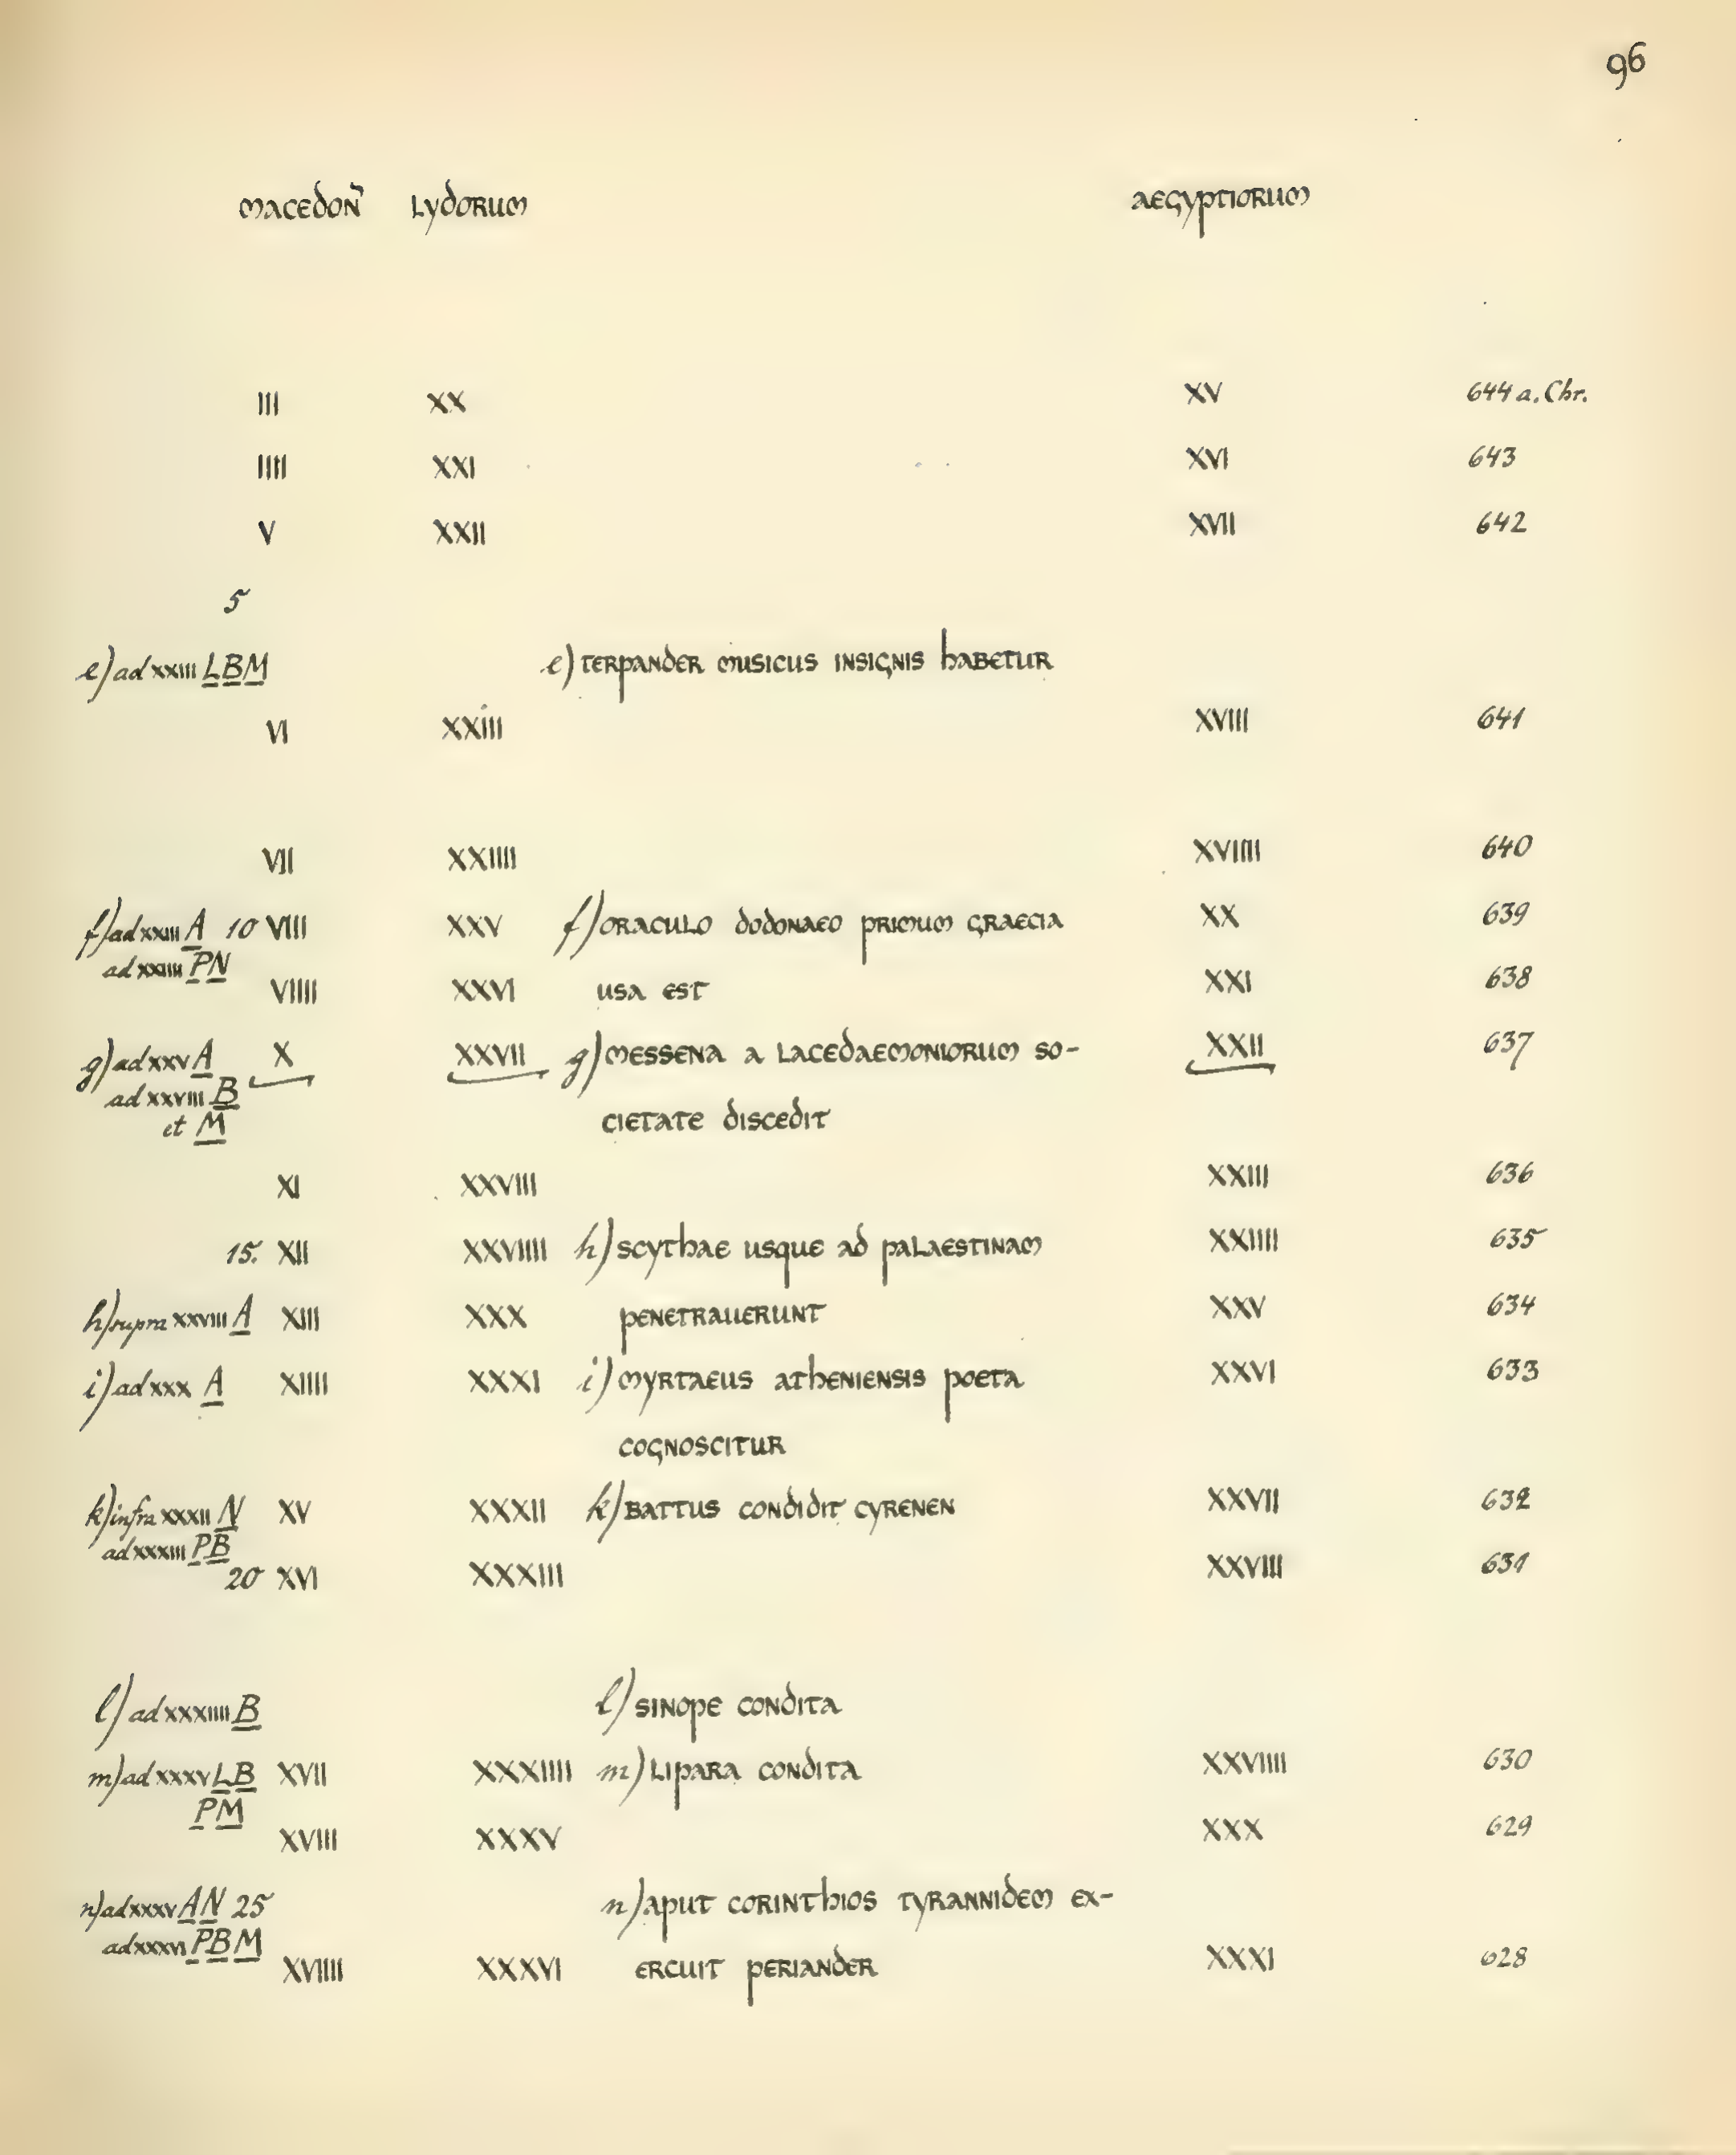 96
MACEDOÑ LYDORUM AEGYPTIORUM
III XX XV 644 a. Chr.
IIII XXI XVI 643
V XXII XVII 642
5
e) ad XXIII LBM e) TERPANDER MUSICUS INSIGNIS HABETUR
VI XXIII XVIII 641
VII XXIIII XVIIII 640
f) ad XXIII A 10 VIII XXV f) ORACULO DODONAEO PRIMUM GRAECIA XX 639
ad XXIIII PN
VIIII XXVI USA EST XXI 638
g) ad XXV A X XXVII g) MESSENA A LACEDAEMONIORUM SO- XXII 637
ad XXVIII B
et M CIETATE DISCEDIT
XI XXVIII XXIII 636
15. XII XXVIIII h) SCYTHAE USQUE AD PALAESTINAM XXIIII 635
h) supra XXVIII A XIII XXX PENETRAUERUNT XXV 634
i) ad XXX A XIIII XXXI i) MYRTAEUS ATHENIENSIS POETA XXVI 633
COGNOSCITUR
k) infra XXXII N XV XXXII k) BATTUS CONDIDIT CYRENEN XXVII 632
ad XXXIII PB
20 XVI XXXIII XXVIII 631
l) ad XXXIIII B l) SINOPE CONDITA
m) ad XXXV LB XVII XXXIIII m) LIPARA CONDITA XXVIIII 630
PM
XVIII XXXV XXX 629
n) ad XXXV AN 25 n) APUT CORINTHIOS TYRANNIDEM EX-
ad XXXVI PBM
XVIIII XXXVI ERCUIT PERIANDER XXXI 628